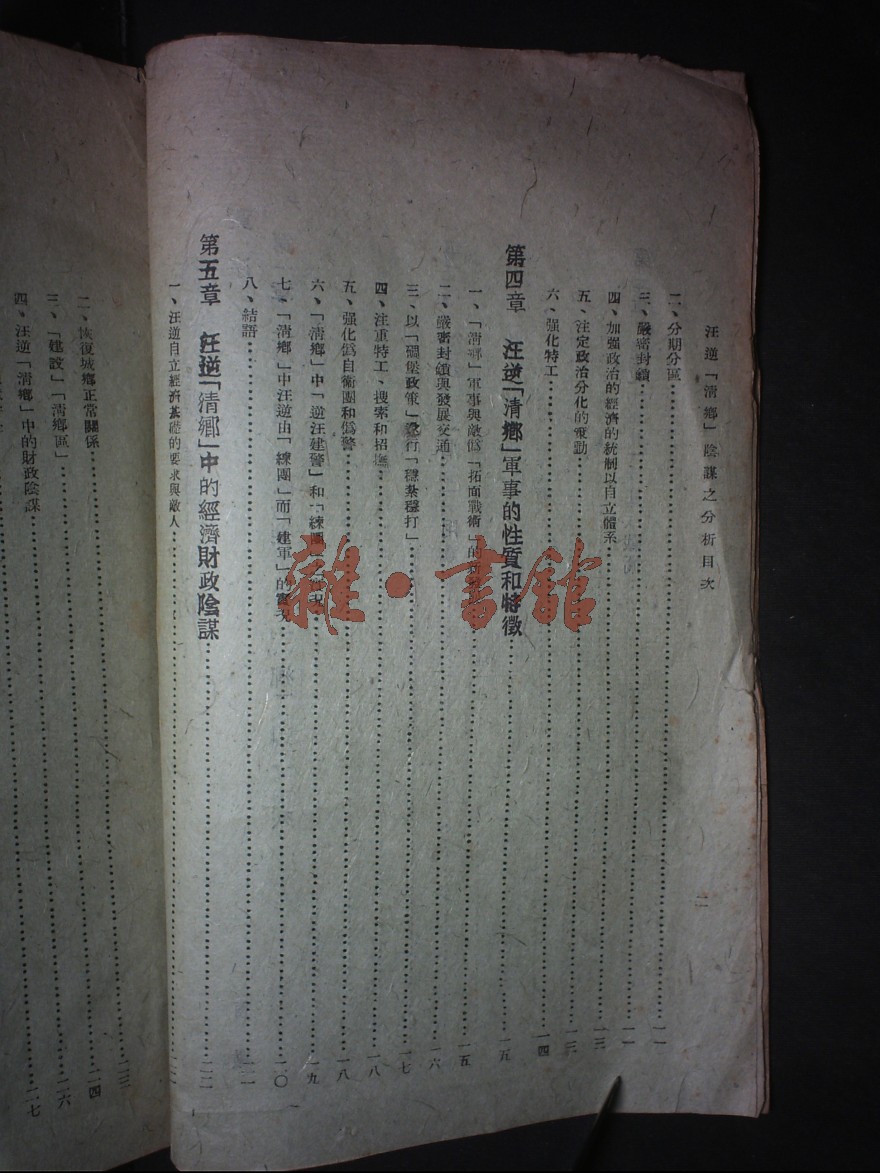 汪逆「清鄉」陰謀之分析目次
二
二、分期分區……一一
三、嚴密封鎖……一一
四、加強政治的經濟的統制以自立體系……一三
五、注定政治分化的策動……一三
六、強化特工……一四
第四章 汪逆「清鄉」軍事的性質和特徵……一五
一、「清鄉」軍事與敵僞「拓面戰術」的……一五
二、嚴密封鎖與發展交通……一六
三、以「碉堡政策」變行「穩紮穩打」……一七
四、注重特工、搜索和招撫……一八
五、强化僞自衛團和僞警……一八
六、「清鄉」中「逆汪建警」和「練團」……一九
七、「清鄉」中汪逆由「練團」而「建軍」的實況……二〇
八、結語……二一
第五章 汪逆「清鄉」中的經濟財政陰謀……二二
一、汪逆自立經濟基礎的要求與敵人……二二
二、恢復城鄉正常關係……二三
三、「建設」「清鄉區」……二四
四、汪逆「清鄉」中的財政陰謀……二六
二七
雜·書館